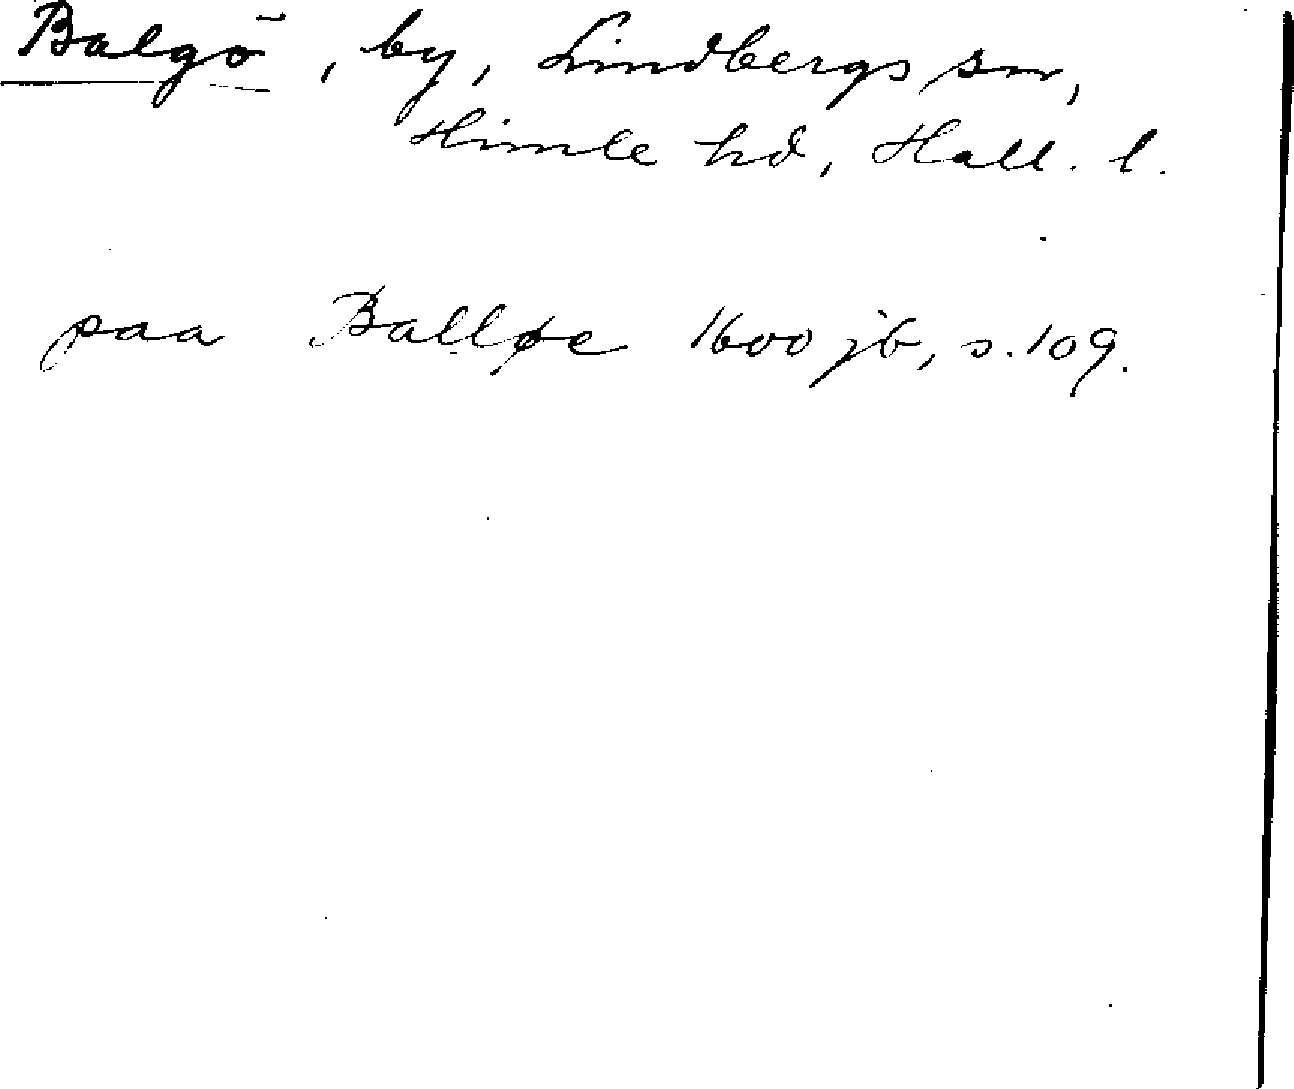 Balgö, by, Lindbergs sn,
Himle hd, Hall. l.
paa Balløe 1600 jb, s. 109.